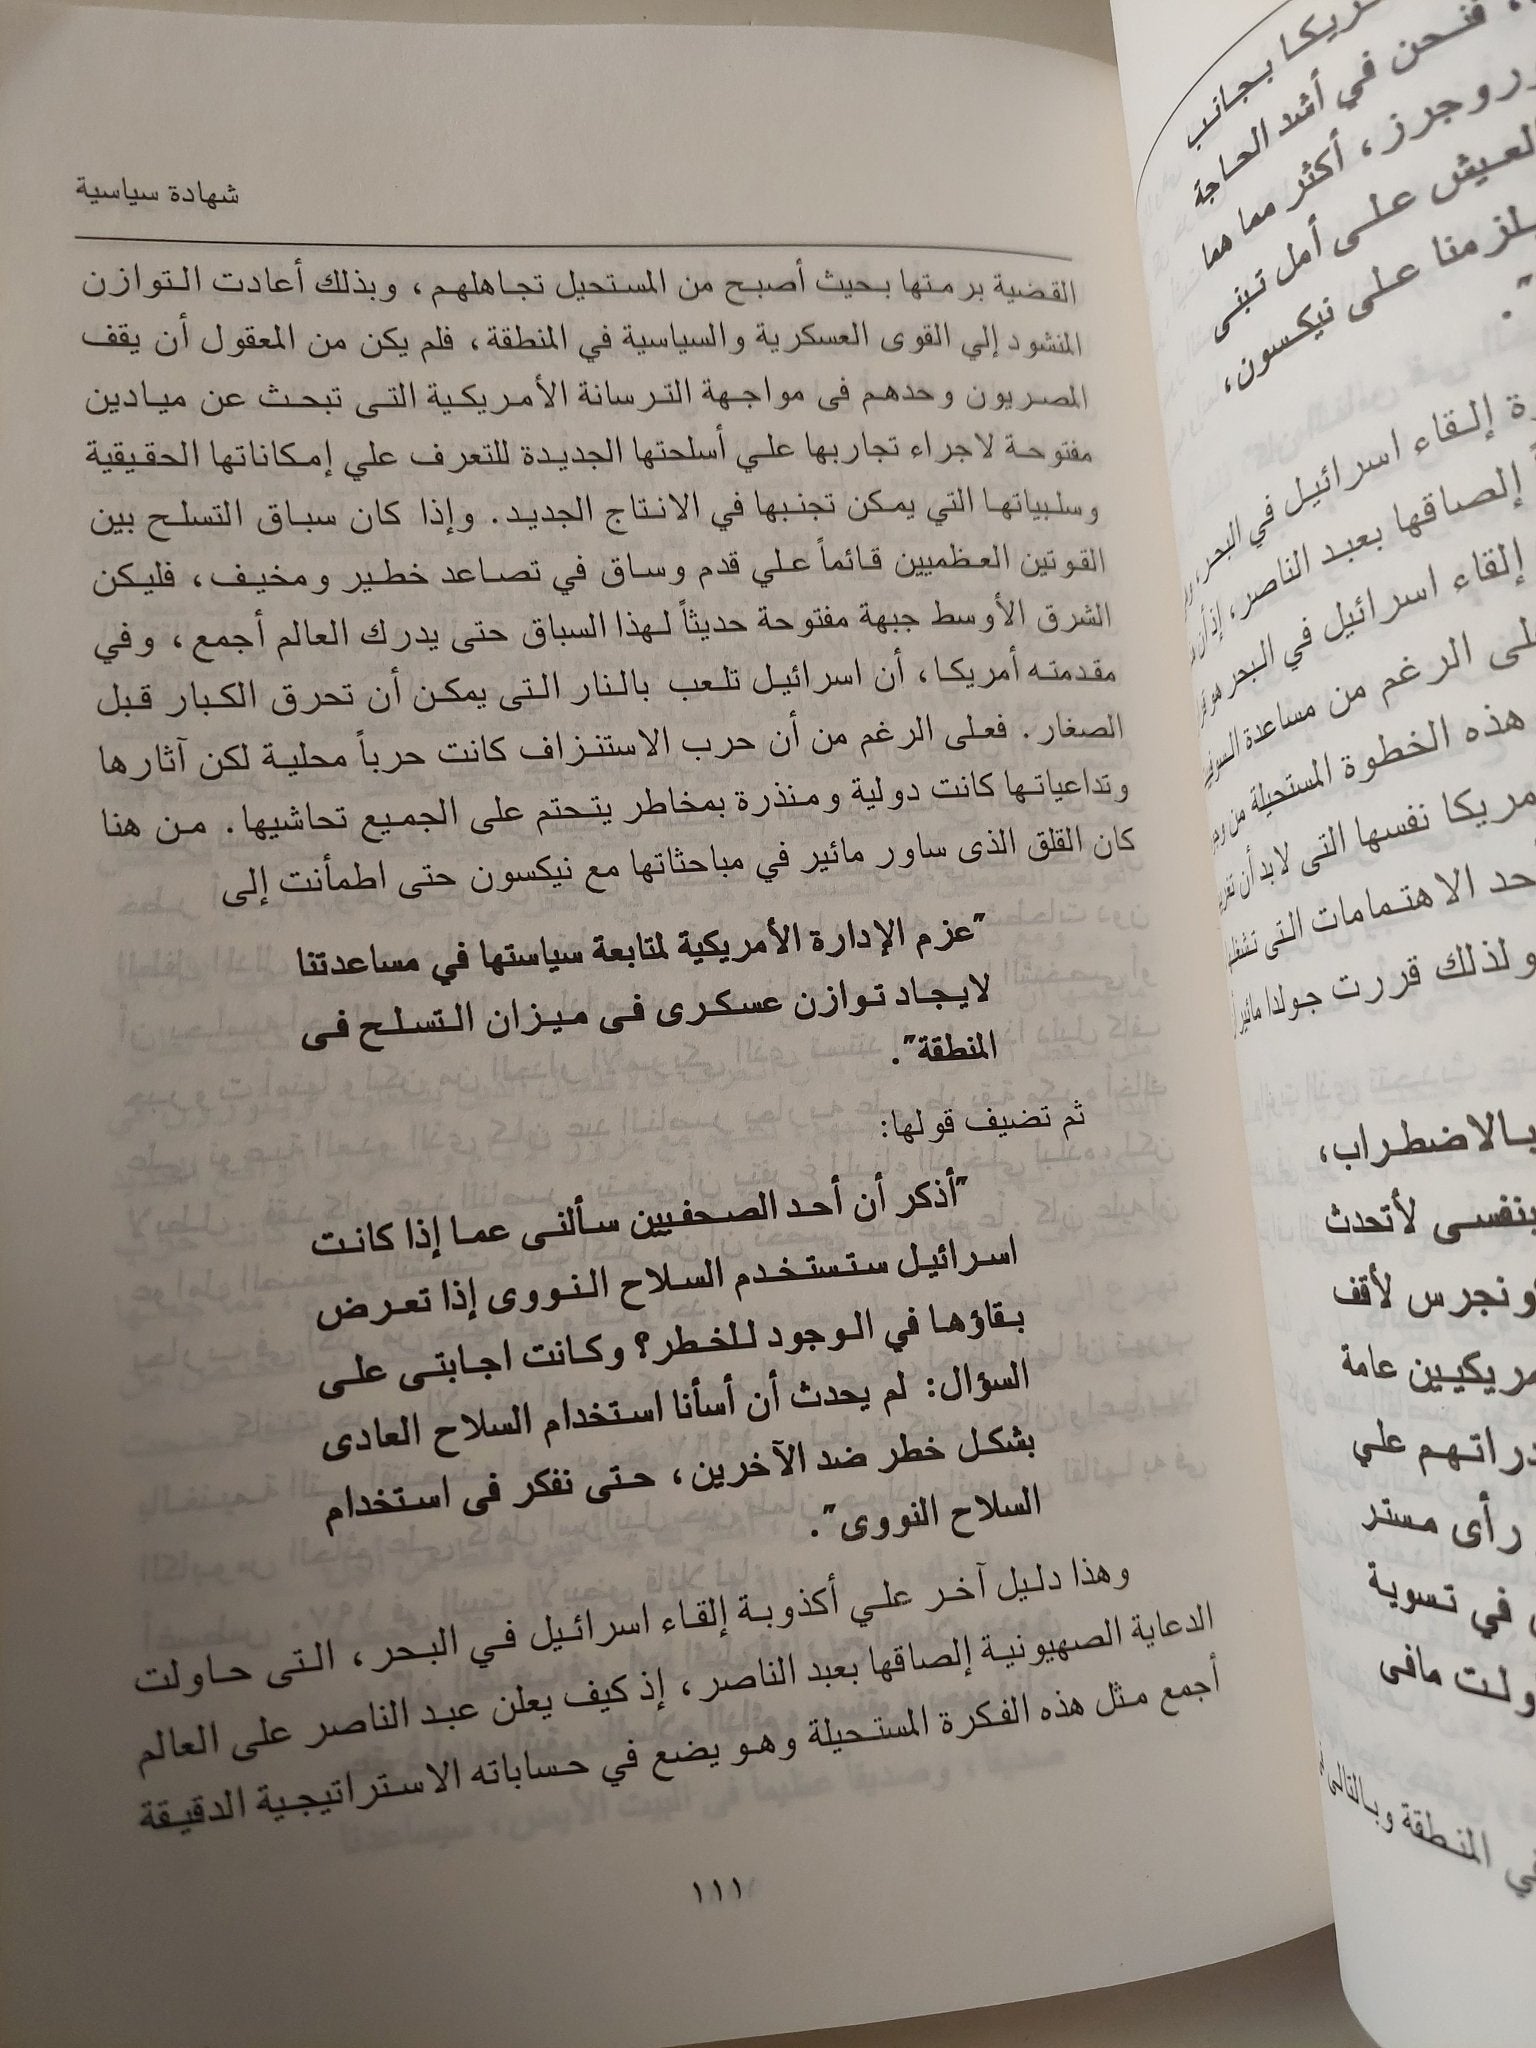 شهادة سياسية
القضية برمتها بحيث أصبح من المستحيل تجاهلهم، وبذلك أعادت التوازن
المنشود إلي القوى العسكرية والسياسية في المنطقة، فلم يكن من المعقول أن يقف
المصريون وحدهم فى مواجهة الترسانة الأمريكية التى تبحث عن ميادين
مفتوحة لاجراء تجاربها علي أسلحتها الجديدة للتعرف علي إمكاناتها الحقيقية
وسلبياتها التي يمكن تجنبها في الانتاج الجديد. وإذا كان سباق التسلح بين
القوتين العظميين قائماً علي قدم وساق في تصاعد خطير ومخيف، فليكن
الشرق الأوسط جبهة مفتوحة حديثاً لهذا السباق حتى يدرك العالم أجمع، وفي
مقدمته أمريكا، أن اسرائيل تلعب بالنار التى يمكن أن تحرق الكبار قبل
الصغار. فعلى الرغم من أن حرب الاستنزاف كانت حرباً محلية لكن آثارها
وتداعياتها كانت دولية ومنذرة بمخاطر يتحتم على الجميع تحاشيها. من هنا
كان القلق الذى ساور مائير في مباحثاتها مع نيكسون حتى اطمأنت إلى
"عزم الإدارة الأمريكية لمتابعة سياستها في مساعدتنا
لايجاد توازن عسكرى فى ميزان التسلح فى
المنطقة".
ثم تضيف قولها:
"أذكر أن أحد الصحفيين سألنى عما إذا كانت
اسرائيل ستستخدم السلاح النووى إذا تعرض
بقاؤها في الوجود للخطر؟ وكانت اجابتى على
السؤال: لم يحدث أن أسأنا استخدام السلاح العادى
بشكل خطر ضد الآخرين، حتى نفكر فى استخدام
السلاح النووى".
وهذا دليل آخر علي أكذوبة إلقاء اسرائيل في البحر، التى حاولت
الدعاية الصهيونية إلصاقها بعبد الناصر، إذ كيف يعلن عبد الناصر على العالم
أجمع مثل هذه الفكرة المستحيلة وهو يضع في حساباته الاستراتيجية الدقيقة
١١١
بجانب
فنحن في أشد الحاجة
روجرز، أكثر مما هما
العيش على أمل تبنى
على نيكسون،
إلقاء اسرائيل في البحر،
إلصاقها بعبد الناصر،
إلقاء اسرائيل في البحر
الرغم من مساعدة
هذه الخطوة المستحيلة من
نفسها التى لابد أن
الاهتمامات التى
ولذلك قررت جولدا مائير
بالاضطراب،
بنفسى لأتحدث
لأقف
عامة
علي
رأى مستر
في تسوية
مافى
المنطقة وبالتالى